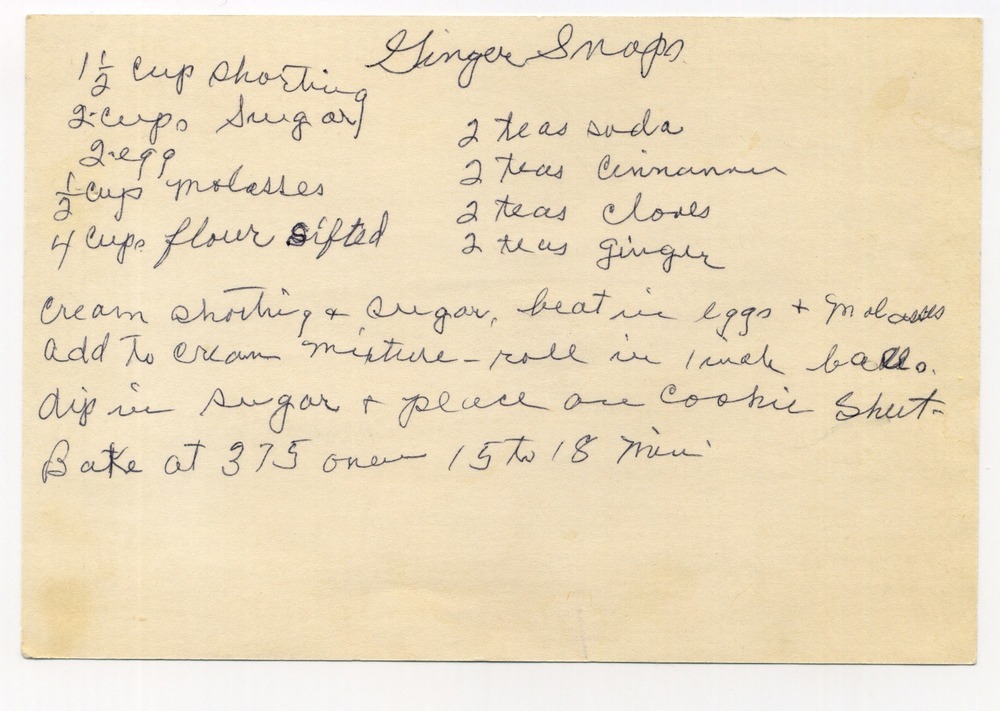 Ginger Snaps
1 1/2 cup shorting
2 cups Sugar
2 egg
1/2 cup molasses
4 cups flour sifted
2 teas soda
2 teas Cinnamon
2 teas cloves
2 teas ginger
Cream shorting & sugar, beat in eggs + molasses
add to cream mixture - roll in 1 inch balls.
dip in sugar + place on Cookie Sheet -
Bake at 375 oven 15 to 18 Min